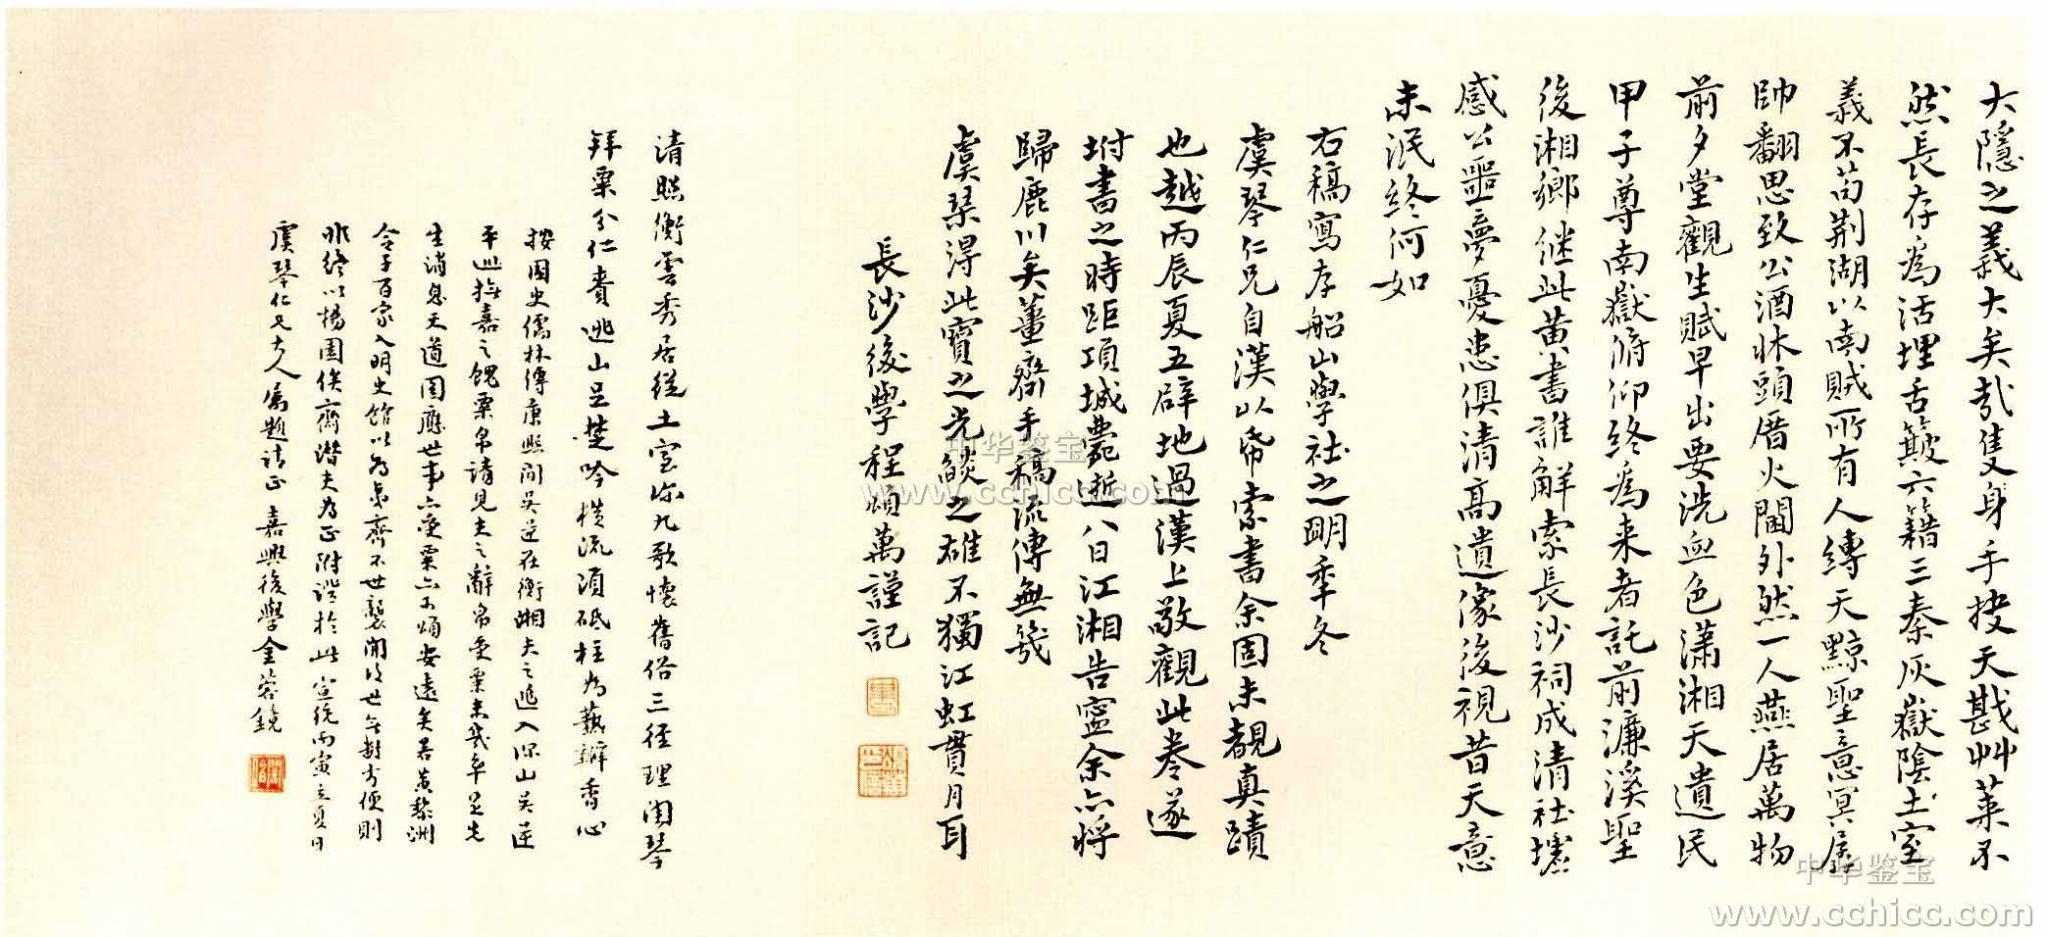 大隱之義大矣哉隻身手抉天戡艸萊不
然長存為活埋舌簸六籍三秦灰嶽陰土室
義不苟荆湖以南賊所有人縛天黥聖意冥居
帥翻思致公酒牀頭厝火闔外然一人燕居萬物
前夕堂觀生賦早出要洗血色瀟湘天遺民
甲子尊南嶽俯仰終為来者託前濂溪聖
後湘鄉继此黄書誰解索長沙祠成清社墟
感公噩夢憂患俱清高遺像後視昔天意
未泯終何如
右稿寫存船山學社之明季冬
虞琴仁兄自漢以帋索書余固未覩真蹟
也越丙辰夏五辟地過漢上敬觀此卷遂
坿書之時距項城薨逝八日江湘告寍余亦将
歸鹿川矣薑齋手稿流傳無幾
虞琹淂此寶之光燄之雄不獨江虹貫月耳
長沙後學程頌萬謹記
清照衡雲秀居從土室深九歌懷舊俗三徑理閑琴
拜粟分仁責逃山足楚吟横流須砥柱為爇瓣香心
按國史儒林傳康熙间吴逆在衡湘夫之逃入深山吴逆
平巡撫嘉之餽粟帛请見夫之辭帛受粟未幾卒是先
生消息天道因應世事亦受粟亦不頌安遠矣若黄黎洲
令子百家入明史館以为夷齊不世襲開後世無數方便則
非终以楊園俟齊潛夫为正附證於此宣统丙寅立夏日
虞琴仁兄大人属题请正 嘉興後學金蓉鏡
中华鉴宝
www.cchicc.com
中华鉴宝
www.cchicc.com